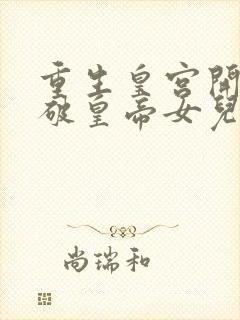 重生皇宫開
破皇帝女兒
尚瑞和